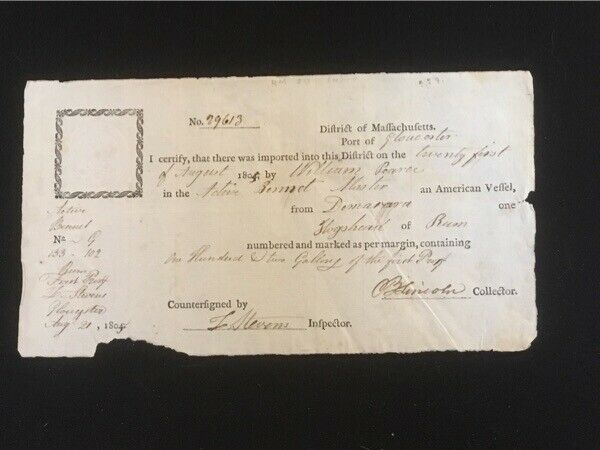 No. 29613
District of Massachusetts.
Port of Gloucester
I certify, that there was imported into this District on the twenty first
of August 1805, by William Pearce
in the Active Bennet Master an American Vessel,
from Demarara one
Hogshead of Rum
numbered and marked as per margin, containing
One Hundred & two Gallons of the first Proof
Collector.
Countersigned by
L Stevens Inspector.
Active
Bennet
No G
133 - 102
Rum
First Proof
L Stevens
Gloucester
Aug 21, 1805